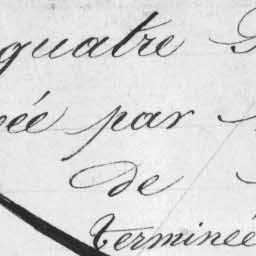 quatre
ée par
de
terminée